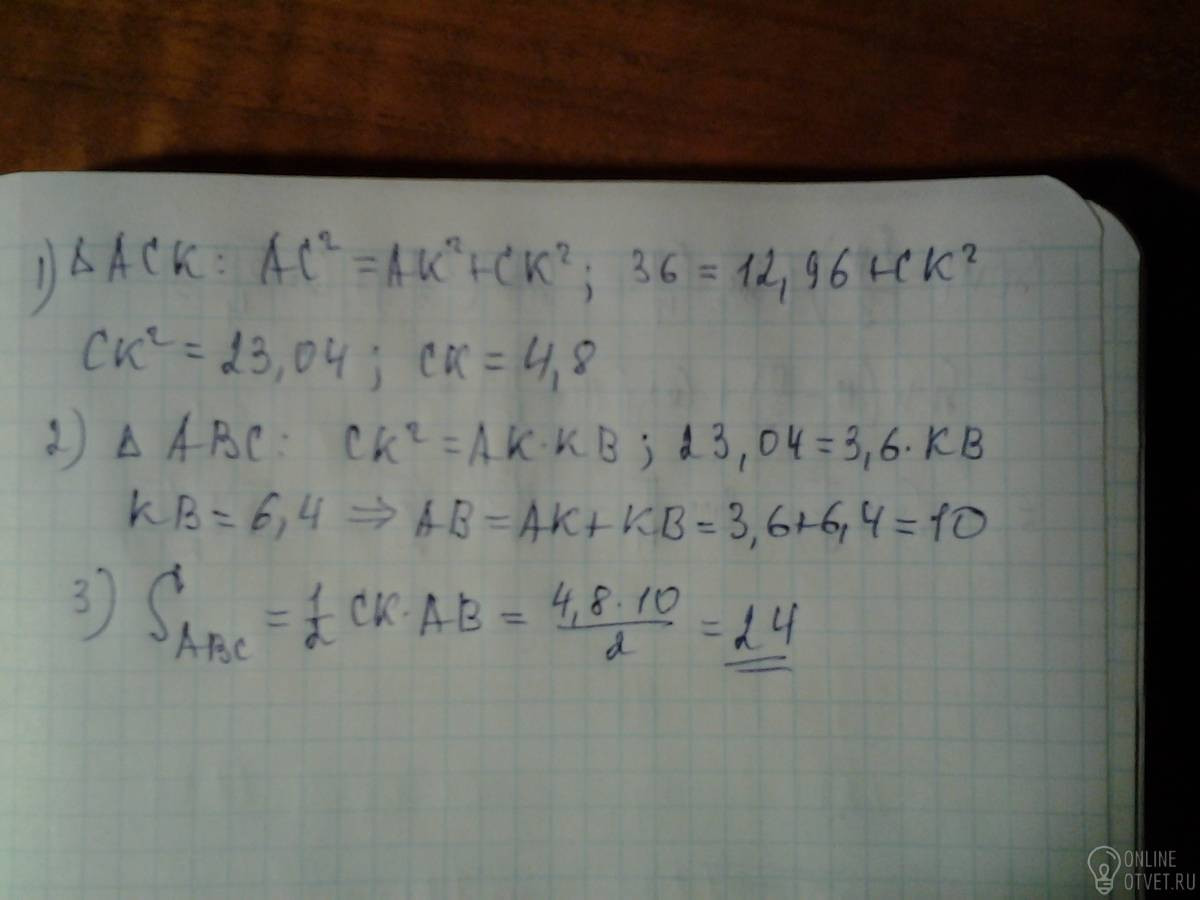 1) Δ ACK: AC² = AK² + CK²; 36 = 12,96 + CK²
CK² = 23,04; CK = 4,8
2) Δ ABC: CK² = AK·KB; 23,04 = 3,6·KB
KB = 6,4 ⇒ AB = AK + KB = 3,6 + 6,4 = 10
3) S_ABC = 1/2 CK·AB = 4,8·10/2 = 24
ONLINE
OTVET.RU